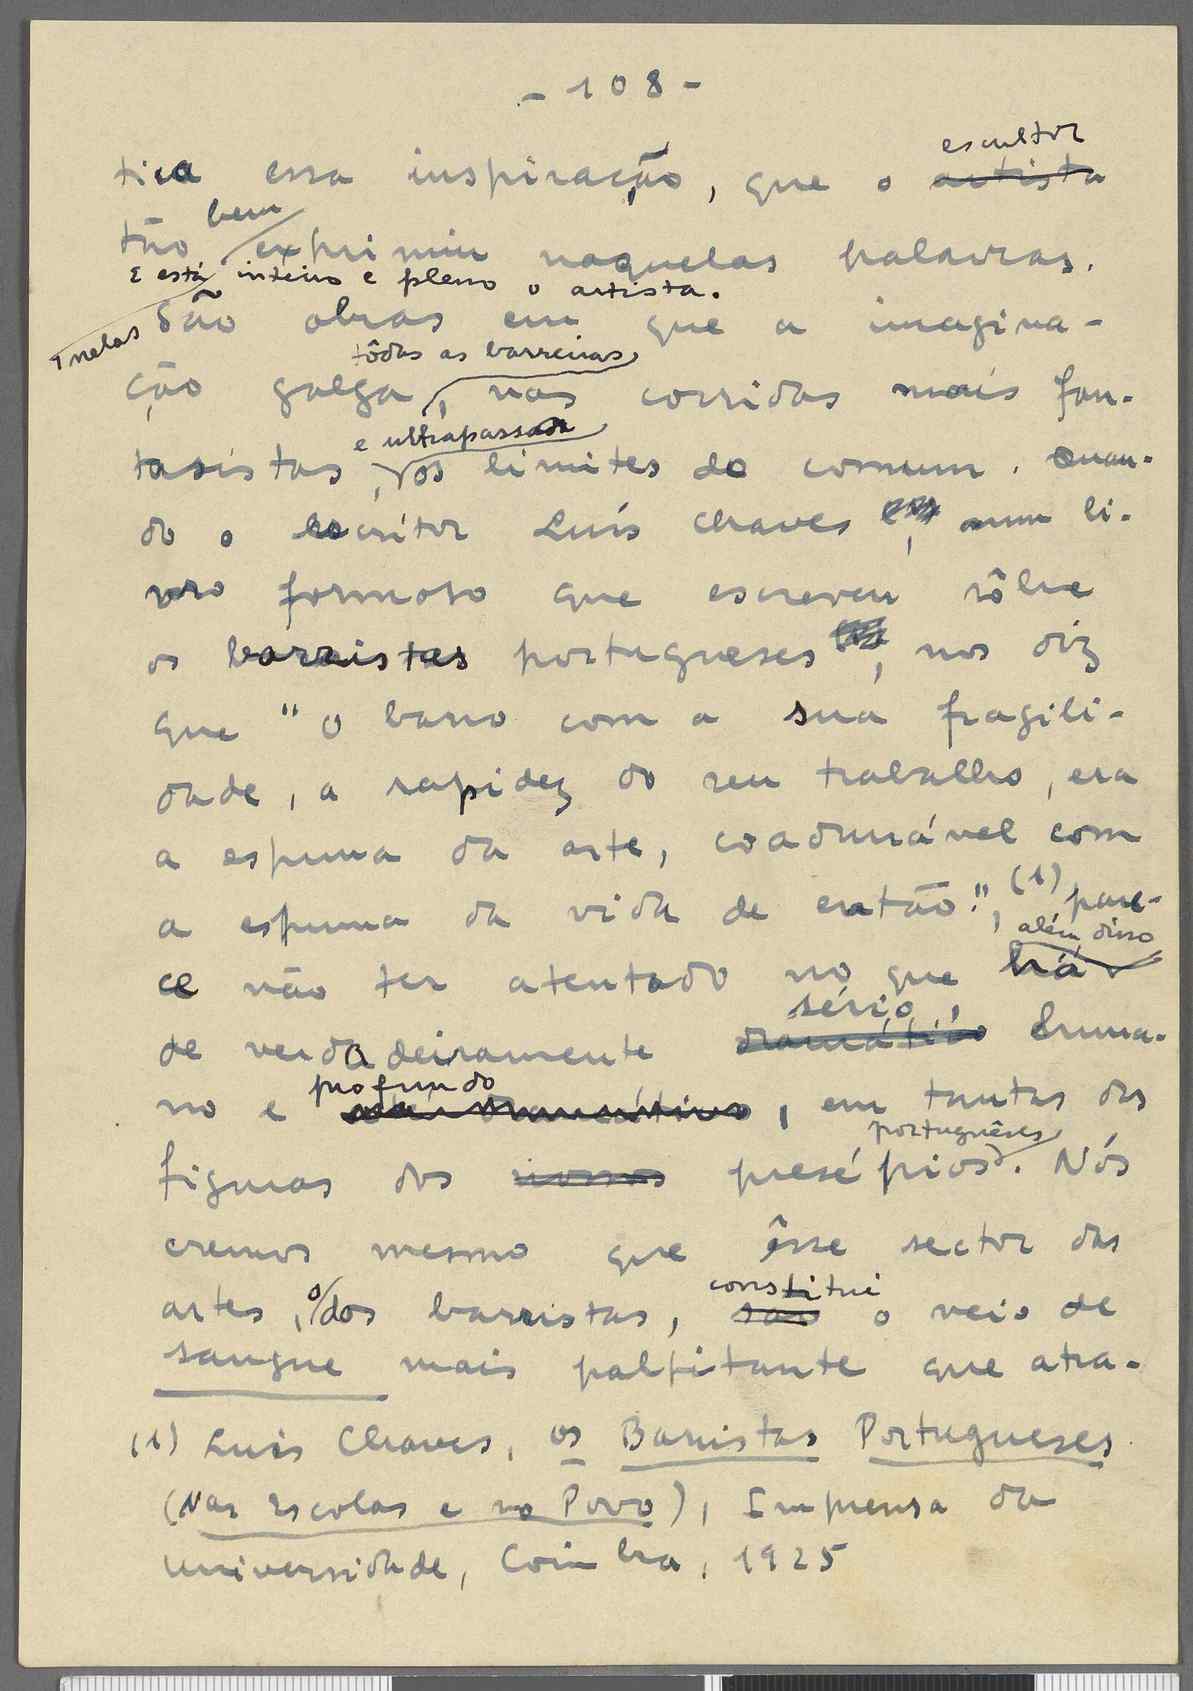 - 108 -
escultor
tica essa inspiração, que o artista
bem
tão exprimiu naquelas palavras.
E está inteiro e pleno o artista.
São obras em que a imagina-
nelas
tôdas as barreiras
ção galga, nas corridas mais fan-
e ultrapassada
tasistas, os limites do comum. Quan-
do o escritor Luís Chaves, num li-
vro formoso que escreveu sôbre
os barristas portugueses, nos diz
que "o barro com a sua fragili-
dade, a rapidez do seu trabalho, era
a espuma da arte, coadunável com
a espuma da vida de então.", (1) pare-
além disso
ce não ter atentado no que há
sério,
de verdadeiramente dramático huma-
profundo
no e até dramático, em tantas das
portugueses
figuras dos nossos presépios. Nós
cremos mesmo que êsse sector das
constitui
artes, o dos barristas, são o veio de
sangue mais palpitante que atra-
(1) Luis Chaves, os Barristas Portugueses
(Nas Escolas e no Povo), Imprensa da
Universidade, Coimbra, 1925